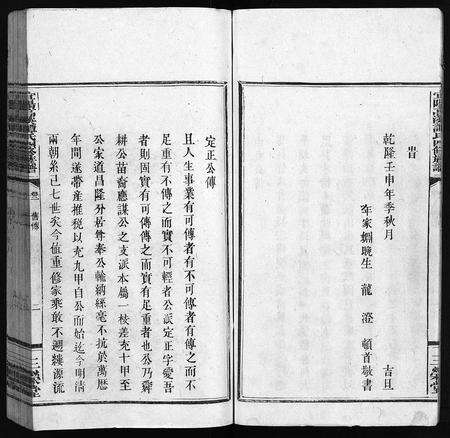 旹
乾隆壬申年季秋月
吉旦
年家姻晚生 龍 澄 頓首敬書
三樂堂
定正公傳
且人生事業有可傳者有不可傳者有傳之而不
足重有不傳之而實不可輕者公諱定正字愛吾
者則固實有可傳傳之而實有足重者也公乃舜
耕公苗裔應謀公之支派本屬一枝差充十甲至
公家道昌隆分居尊奉公輸納絲毫不抗於萬曆
年間遂帶產推税以充九甲自公而始迄今明清
兩朝系已七世矣今值重修家乘敢不溯厥源流
卷一 舊傳
二
三樂堂